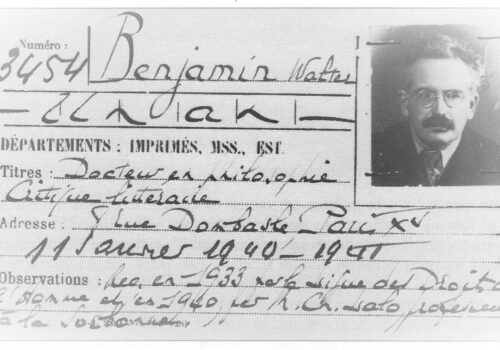 Numéro :
3454 Benjamin Walter
Un an
DÉPARTEMENTS : IMPRIMÉS, MSS., EST.
Titres : Docteur en philosophie
Critique littéraire
Adresse : rue Dombasle Paris XV
11 Janvier 1940 - 1941
Observations : en 1933 par la Ligue des Droits de
l'Homme et en 1940 par professeur
à la Sorbonne